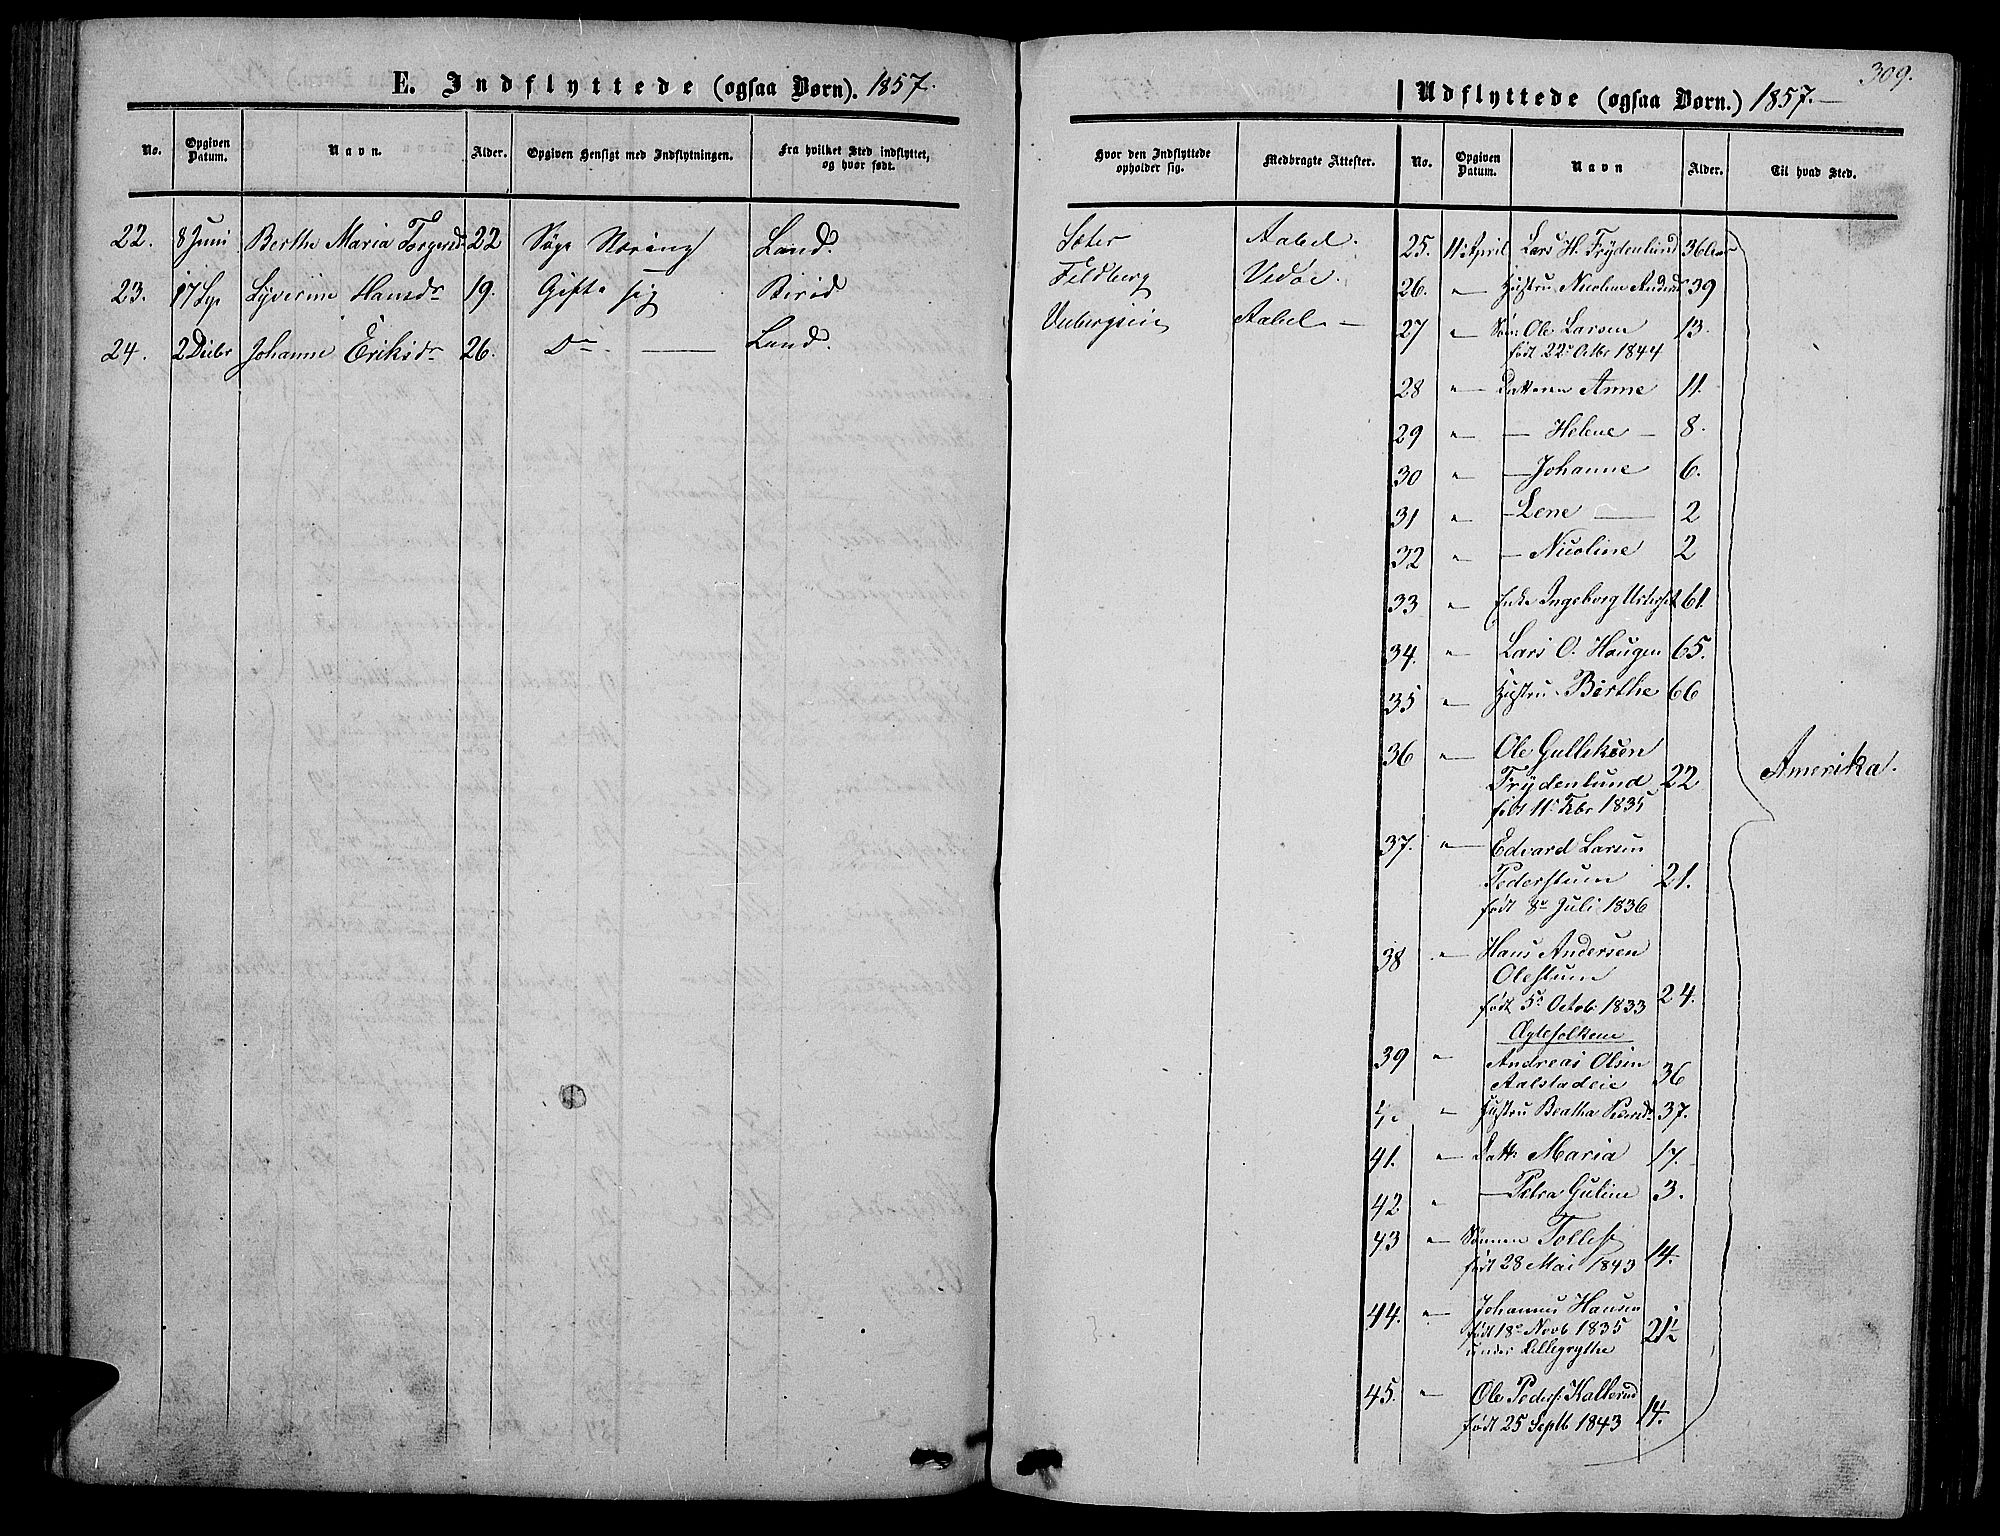 E. Indflyttede (ogsaa Børn). 1857.
No. Opgiven Datum. Navn. Alder. Opgiven Hensigt med Indflytningen. Fra hvilket Sted indflyttet, og hvor født.
22. 8 Juni Berthe Maria Torgersd 22 Søge Næring Land.
23. 17 Sep Syverine Hansdr 19. Gifte sig Birid
24. 2 Decbr Johanne Eriksdr 26. Do — Land.
309.
Udflyttede (ogsaa Børn.) 1857.—
Hvor den Indflyttede opholder sig. Medbragte Attester. No. Opgiven Datum. Navn Alder. Til hvad Sted.
Sæter Aabel.
Feldberg Vedøe.
Aabel —
25. 11 April Lars H. Frydenlund 36
26. " Hustru Nicoline Andersd 39
27 " Søn Ole Larsen 13.
født 22de Octbr 1844
28 " Datteren Anne 11.
29 " — Helene — 8.
30 " — Johanne 6.
31 " — Lene — 2
32 " — Nicoline 2
33 " Enke Ingeborg 61.
34. " Lars O. Haugen 65.
35 " Hustru Berthe 66
36 " Ole Gulliksen
Frydenlund 22
født 11te Febr 1835
37. " Edvard Larsen
Pederstuen 21.
født 8de Juli 1836
38 " Hans Andersen
Olestuen
født 5te Octob 1833 24.
Ægtefolkene
39 " Andreas Olsen
Aalstadeie 36
40 " Hustru Beatha Pedersdr 37.
41. " Datt: Maria 17.
42 " — Petra Guline 3.
43 " Sønnen Tollef
født 28 Mai 1843 14.
44. " Johannes Hansen
født 18de Novb 1835 21½
under Lillegrythe
45. " Ole Peders: Kallerud
født 25 Septb 1843 14.
Amerika.